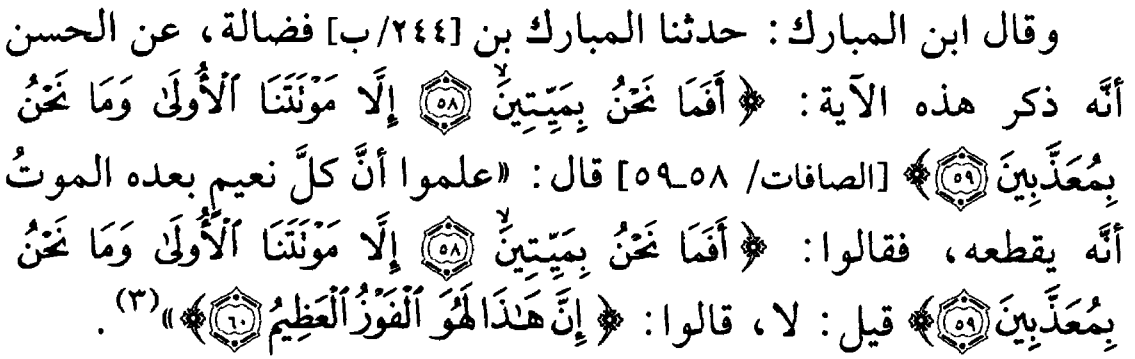 وقال ابن المبارك: حدثنا المبارك بن [٢٤٤/ب] فضالة، عن الحسن
أنَّه ذكر هذه الآية: ﴿أَفَمَا نَحْنُ بِمَيِّتِينَ ۝٥٨ إِلَّا مَوْتَتَنَا ٱلْأُولَىٰ وَمَا نَحْنُ
بِمُعَذَّبِينَ ۝٥٩﴾ [الصافات/ ٥٨ـ٥٩] قال: «علموا أنَّ كلَّ نعيمٍ بعده الموتُ
أنَّه يقطعه، فقالوا: ﴿أَفَمَا نَحْنُ بِمَيِّتِينَ ۝٥٨ إِلَّا مَوْتَتَنَا ٱلْأُولَىٰ وَمَا نَحْنُ
بِمُعَذَّبِينَ ۝٥٩﴾ قيل: لا، قالوا: ﴿إِنَّ هَٰذَا لَهُوَ ٱلْفَوْزُ ٱلْعَظِيمُ ۝٦٠﴾»(٣).